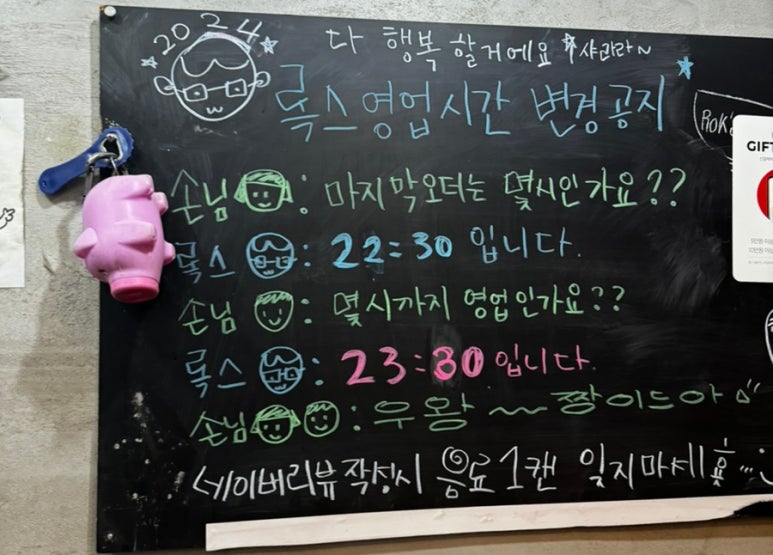 2024
다 행복 할거에요 샤라라~
록스영업시간 변경공지
Rok's
GIFT
손님 : 마지막오더는 몇시인가요??
록스 : 22:30 입니다.
손님 : 몇시까지 영업인가요??
록스 : 23:30 입니다.
손님 : 우왕 ~ 짱이드아
네이버리뷰작성시 음료1캔 잊지마세용...